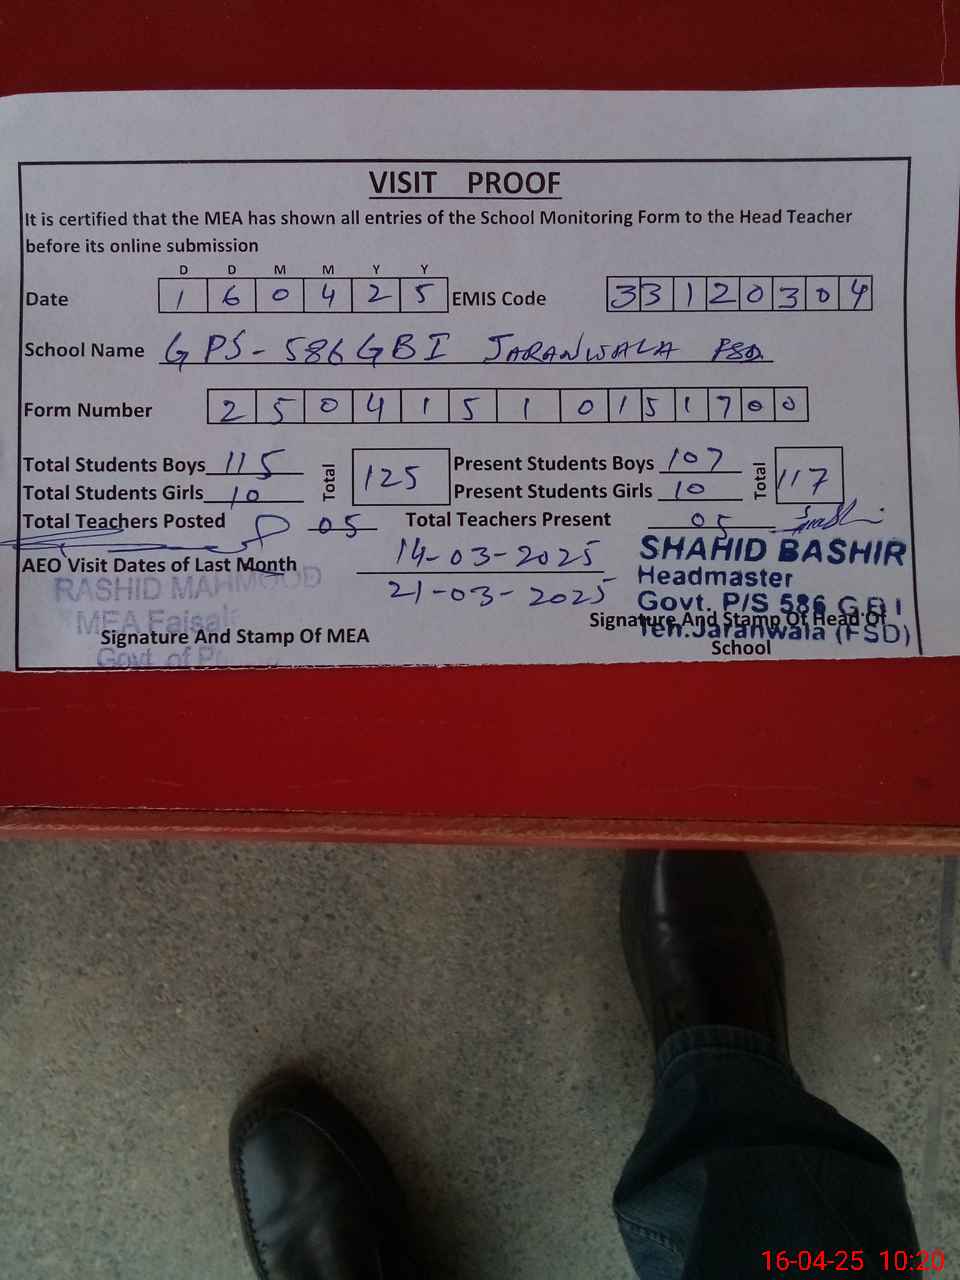 VISIT PROOF
It is certified that the MEA has shown all entries of the School Monitoring Form to the Head Teacher
before its online submission
D D M M Y Y
Date 1 6 0 4 2 5 EMIS Code 3 3 1 2 0 3 0 4
School Name GPS-586 GBI JARANWALA FSD
Form Number 2 5 0 4 1 5 1 0 1 5 1 7 0 0
Total Students Boys 115 Total 125 Present Students Boys 107 Total 117
Total Students Girls 10 Present Students Girls 10
Total Teachers Posted 05 Total Teachers Present 05
AEO Visit Dates of Last Month 14-03-2025
21-03-2025
RASHID MAHMOOD
MEA Faisal
Govt of
Signature And Stamp Of MEA
SHAHID BASHIR
Headmaster
Govt. P/S 586 G.B I
Teh.Jaranwala (FSD)
Signature And Stamp Of Head Of
School
16-04-25 10:20